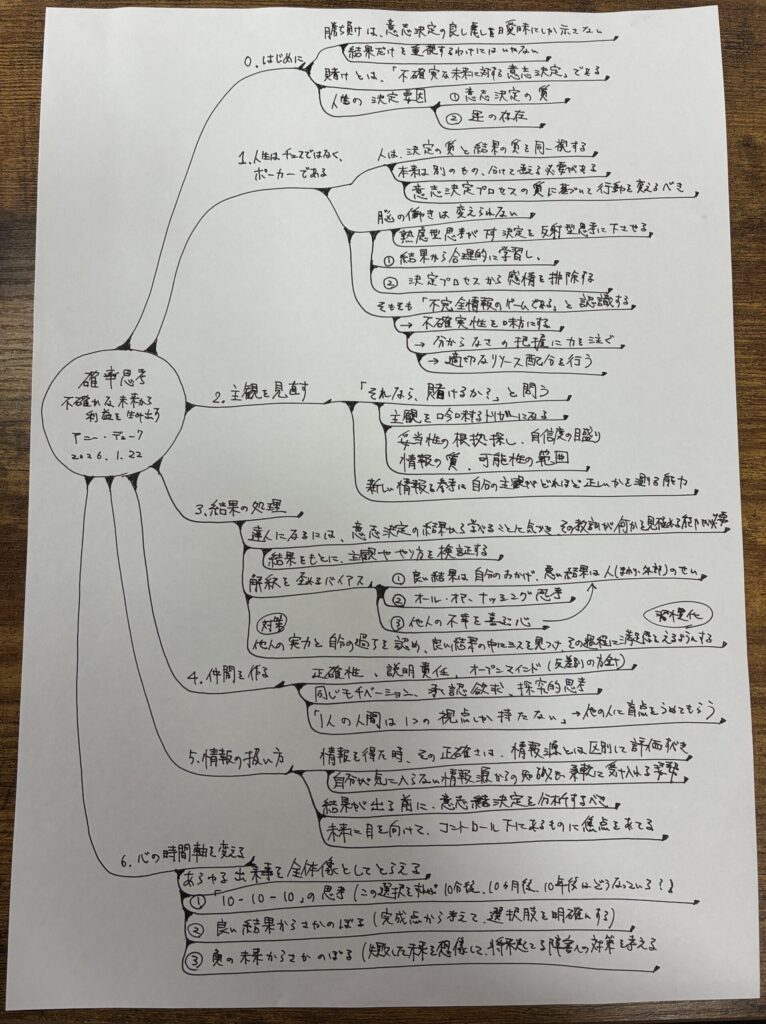 0. はじめに
勝ち負けは、意志決定の良し悪しを曖昧にしか示さない
結果だけを重視するわけにはいかない
賭けとは、「不確実な未来に対する意志決定」である
人生の決定要因
① 意志決定の質
② 運の存在
1. 人生はチェスではなく、
ポーカーである
人は、決定の質と結果の質を同一視する
本来は別のもの、分けて考える必要がある
意志決定プロセスの質に基づいて行動を変えるべき
脳の働きは変えられない
熟慮型思考が下す決定を反射型思考に下させる
① 結果から合理的に学習し、
② 決定プロセスから感情を排除する
そもそも「不完全情報のゲームである」と認識する
→ 不確実性を味方にする
→ 分からなさの把握に力を注ぐ
→ 適切なリソース配分を行う
確率思考
不確かな未来から
利益を生み出す
アニー・デューク
2026.1.22
2. 主観を見直す
「それなら、賭けるか?」と問う
主観を吟味するトリガーになる
妥当性の根拠探し、自信度の目盛り
情報の質、可能性の範囲
新しい情報を参考に自分の主観がどれほど正しいかを測る能力
3. 結果の処理
達人になるには、意志決定の結果から学べることに気づき、その教訓が何かを見極める能力が必要
結果をもとに、主観ややり方を検証する
解釈を歪めるバイアス
① 良い結果は自分のおかげ、悪い結果は人(まわり・外部)のせい
② オール・オア・ナッシング思考
③ 他人の不幸を喜ぶ心
対策
習慣化
他人の実力と自分の過ちを認め、良い結果の中にミスを見つけ、その過程に満足感をえるようにする
4. 仲間を作る
正確性、説明責任、オープンマインド
同じモチベーション、承認欲求、探究的思考
「1人の人間は1つの視点しか持たない」→ 他の人に盲点をうめてもらう
5. 情報の扱い方
情報を得た時、その正確さは、情報源とは区別して評価すべき
自分が気に入らない情報源からの知識も柔軟に受け入れる姿勢
結果が出る前に、意志決定を分析するべき
未来に目を向けて、コントロール下にあるものに焦点をあてる
6. 心の時間軸を変える
あらゆる出来事を全体像としてとらえる
① 「10-10-10」の思考 (この選択をすれば10分後、10ヵ月後、10年後はどうなっている?)
② 良い結果からさかのぼる (完成点から考えて、選択肢を明確にする)
③ 負の未来からさかのぼる (失敗した未来を想像して、将来起こる障害への対策を考える